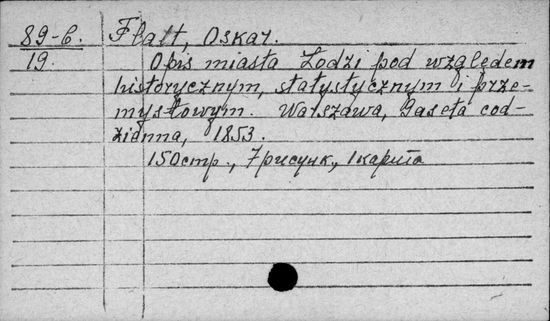 89-6. Flatt, Oskar.
19. Opis miasta Łodzi pod względem
historycznym, statystycznym i prze-
mysłowym. Warszawa, Gaseta cod-
zianna, 1853.
150стр., 7рисунк, 1карта